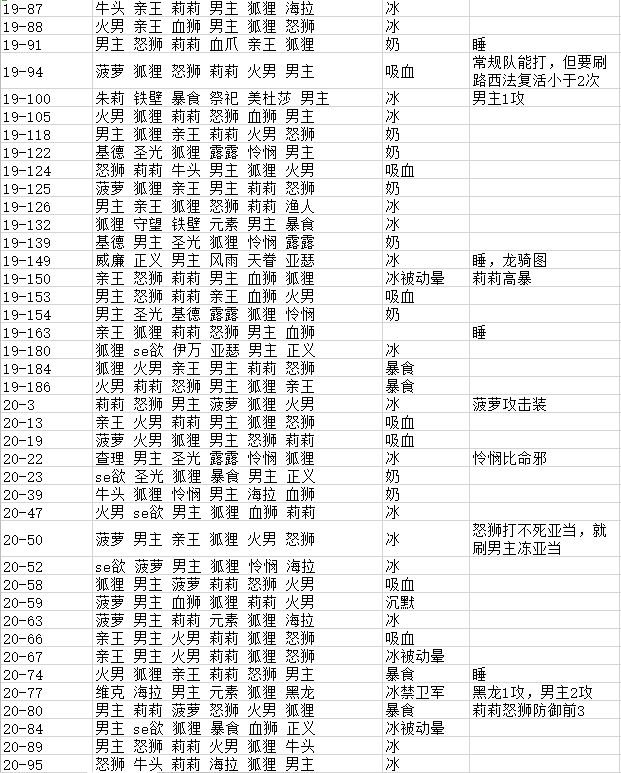 19-87 牛头 亲王 莉莉 男主 狐狸 海拉 冰
19-88 火男 亲王 血狮 男主 狐狸 怒狮 冰
19-91 男主 怒狮 莉莉 血爪 亲王 狐狸 奶 睡
19-94 菠萝 狐狸 怒狮 莉莉 火男 男主 吸血 常规队能打，但要刷
路西法复活小于2次
19-100 朱莉 铁壁 暴食 祭祀 美杜莎 男主 冰 男主1攻
19-105 火男 狐狸 莉莉 怒狮 血狮 男主 冰
19-118 男主 狐狸 亲王 莉莉 火男 怒狮 奶
19-122 基德 圣光 狐狸 露露 怜悯 男主 奶
19-124 怒狮 莉莉 牛头 男主 狐狸 火男 吸血
19-125 菠萝 狐狸 亲王 男主 莉莉 怒狮 奶
19-126 男主 亲王 狐狸 怒狮 莉莉 渔人 冰
19-132 狐狸 守望 铁壁 元素 男主 暴食 冰
19-139 基德 男主 圣光 狐狸 怜悯 露露 奶
19-149 威廉 正义 男主 风雨 天眷 亚瑟 冰 睡，龙骑图
19-150 亲王 怒狮 莉莉 男主 血狮 狐狸 冰被动晕 莉莉高暴
19-153 男主 怒狮 莉莉 亲王 血狮 火男 吸血
19-154 男主 圣光 基德 露露 狐狸 怜悯 奶
19-163 亲王 狐狸 莉莉 怒狮 男主 血狮 睡
19-180 狐狸 se欲 伊万 亚瑟 男主 正义 冰
19-184 狐狸 火男 亲王 男主 莉莉 怒狮 暴食
19-186 火男 莉莉 怒狮 男主 狐狸 亲王 暴食
20-3 莉莉 怒狮 男主 菠萝 狐狸 火男 冰 菠萝攻击装
20-13 亲王 火男 莉莉 男主 狐狸 怒狮 吸血
20-19 菠萝 火男 狐狸 男主 怒狮 莉莉 吸血
20-22 查理 男主 圣光 露露 怜悯 狐狸 冰 怜悯比命邪
20-23 se欲 圣光 狐狸 暴食 男主 正义 奶
20-39 牛头 狐狸 怜悯 男主 海拉 血狮 奶
20-47 火男 se欲 男主 狐狸 血狮 莉莉 冰
20-50 菠萝 男主 亲王 狐狸 火男 怒狮 冰 怒狮打不死亚当，就
刷男主冻亚当
20-52 se欲 菠萝 男主 狐狸 怜悯 海拉 冰
20-58 狐狸 男主 菠萝 莉莉 怒狮 火男 吸血
20-59 菠萝 男主 血狮 狐狸 莉莉 火男 沉默
20-63 菠萝 男主 莉莉 元素 狐狸 海拉 冰
20-66 亲王 男主 火男 莉莉 狐狸 怒狮 吸血
20-67 亲王 男主 火男 莉莉 狐狸 怒狮 冰被动晕
20-74 火男 狐狸 亲王 莉莉 怒狮 男主 暴食 睡
20-77 维克 海拉 男主 元素 狐狸 黑龙 冰禁卫军 黑龙1攻，男主2攻
20-80 男主 莉莉 菠萝 怒狮 火男 狐狸 暴食 莉莉怒狮防御前3
20-84 男主 se欲 狐狸 暴食 血狮 正义 冰被动晕
20-89 男主 怒狮 莉莉 火男 狐狸 牛头 冰
20-95 怒狮 牛头 莉莉 海拉 狐狸 男主 冰